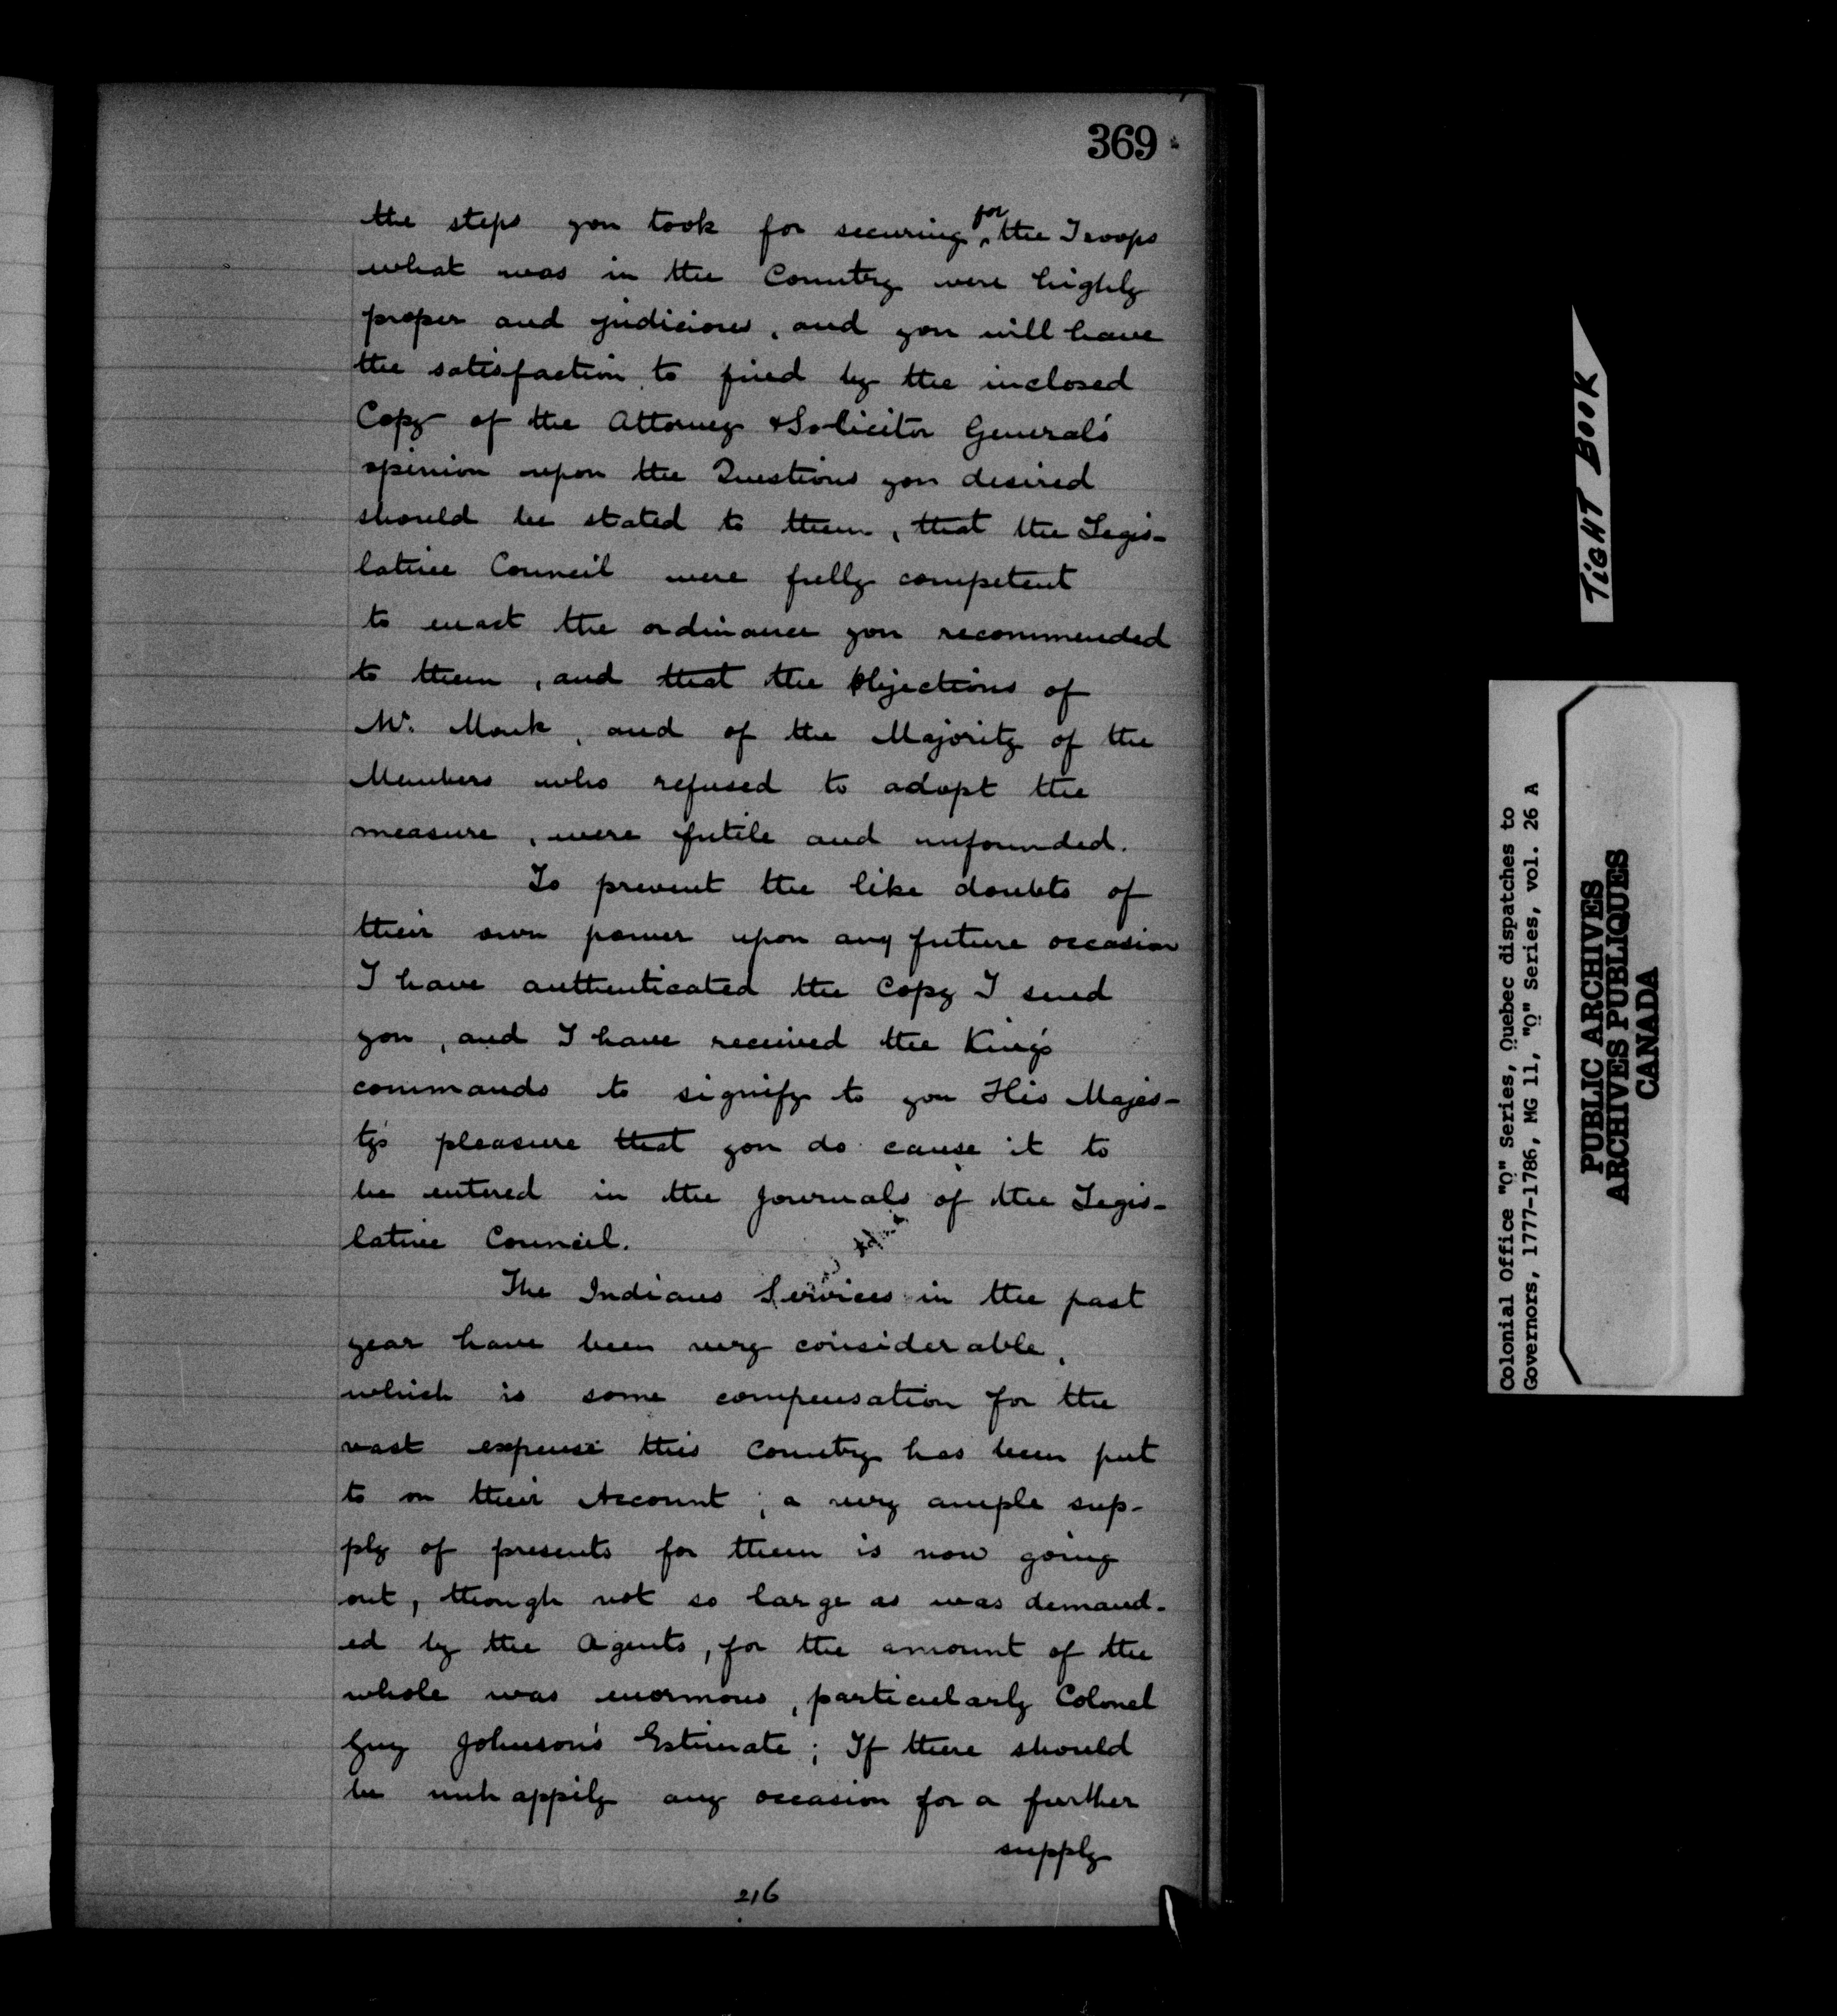 369
the steps you took for securing for the Troops
what was in the Country were highly
proper and judicious, and you will have
the satisfaction to find by the inclosed
Copy of the Attorney & Solicitor General's
opinion upon the Questions you desired
should be stated to them, that the Legis-
lative Council were fully competent
to enact the ordinance you recommended
to them, and that the Objections of
Mr. Monk, and of the Majority of the
Members who refused to adopt the
measure, were futile and unfounded.
To prevent the like doubts of
their own power upon any future occasion
I have authenticated the Copy I send
you, and I have received the King's
commands to signify to you His Majes-
ty's pleasure that you do cause it to
be entered in the Journals of the Legis-
lative Council.
The Indians Services in the past
year have been very considerable,
which is some compensation for the
vast expense this Country has been put
to on their Account; a very ample sup-
ply of presents for them is now going
out, though not so large as was demand-
ed by the Agents, for the amount of the
whole was enormous, particularly Colonel
Guy Johnson's Estimate; If there should
be unhappily any occasion for a further
supply
216
TIGHT BOOK
Colonial Office "Q" Series, Quebec dispatches to
Governors, 1777-1786, MG 11, "Q" Series, vol. 26 A
PUBLIC ARCHIVES
ARCHIVES PUBLIQUES
CANADA